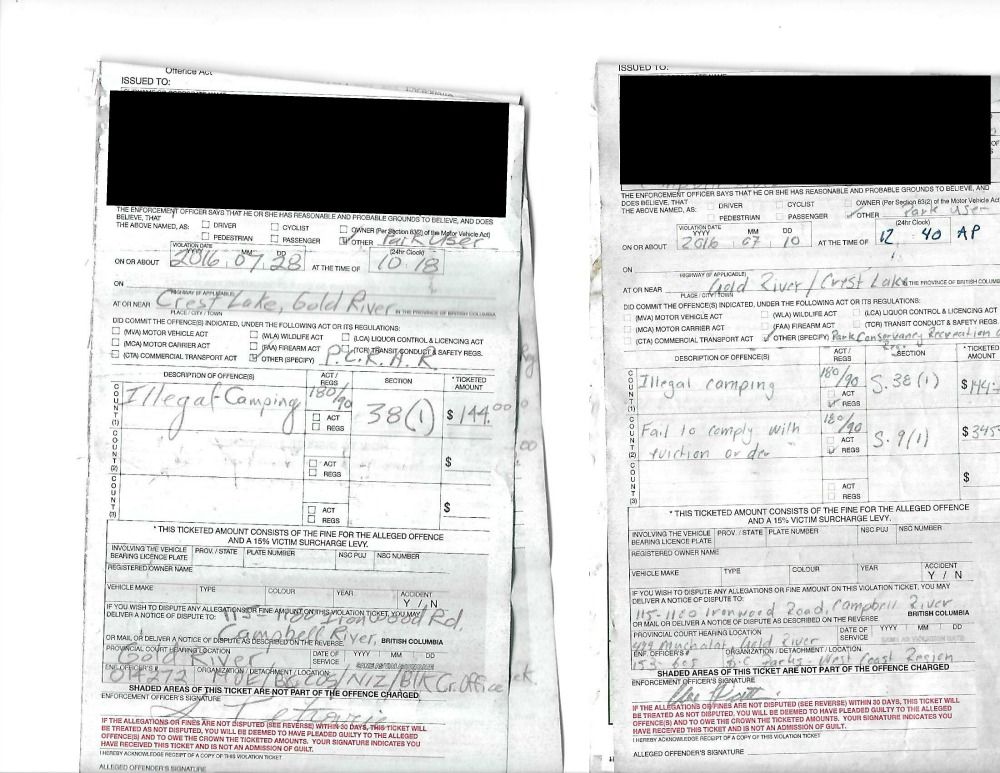 Offence Act
ISSUED TO:
THE ENFORCEMENT OFFICER SAYS THAT HE OR SHE HAS REASONABLE AND PROBABLE GROUNDS TO BELIEVE, AND DOES
BELIEVE, THAT
THE ABOVE NAMED, AS: DRIVER CYCLIST OWNER (Per Section 83(2) of the Motor Vehicle Act)
PEDESTRIAN PASSENGER OTHER Park User
VIOLATION DATE
YYYY MM DD (24hr Clock)
ON OR ABOUT 2016 07 28 AT THE TIME OF 10 18
ON
HIGHWAY (IF APPLICABLE)
AT OR NEAR Crest Lake, Gold River IN THE PROVINCE OF BRITISH COLUMBIA
PLACE / CITY / TOWN
DID COMMIT THE OFFENCE(S) INDICATED, UNDER THE FOLLOWING ACT OR ITS REGULATIONS:
(MVA) MOTOR VEHICLE ACT (WLA) WILDLIFE ACT (LCA) LIQUOR CONTROL & LICENCING ACT
(MCA) MOTOR CARRIER ACT (FAA) FIREARM ACT (TCR) TRANSIT CONDUCT & SAFETY REGS.
(CTA) COMMERCIAL TRANSPORT ACT OTHER (SPECIFY) P.C.R.A.R.
DESCRIPTION OF OFFENCE(S) ACT / REGS SECTION * TICKETED AMOUNT
COUNT (1) Illegal Camping 180/90 ACT REGS 38(1) $ 144.00
COUNT (2) ACT REGS $
COUNT (3) ACT REGS $
* THIS TICKETED AMOUNT CONSISTS OF THE FINE FOR THE ALLEGED OFFENCE
AND A 15% VICTIM SURCHARGE LEVY.
INVOLVING THE VEHICLE BEARING LICENCE PLATE PROV. / STATE PLATE NUMBER NSC PUJ NSC NUMBER
REGISTERED OWNER NAME
VEHICLE MAKE TYPE COLOUR YEAR ACCIDENT
Y / N
IF YOU WISH TO DISPUTE ANY ALLEGATIONS OR FINE AMOUNT ON THIS VIOLATION TICKET, YOU MAY
DELIVER A NOTICE OF DISPUTE TO: 115-1180 Ironwood Rd,
Campbell River, BRITISH COLUMBIA
OR MAIL OR DELIVER A NOTICE OF DISPUTE AS DESCRIBED ON THE REVERSE.
PROVINCIAL COURT HEARING LOCATION DATE OF SERVICE YYYY MM DD
Gold River
ENF. OFFICER'S # ORGANIZATION / DETACHMENT / LOCATION:
SHADED AREAS OF THIS TICKET ARE NOT PART OF THE OFFENCE CHARGED
ENFORCEMENT OFFICER'S SIGNATURE
IF THE ALLEGATIONS OR FINES ARE NOT DISPUTED (SEE REVERSE) WITHIN 30 DAYS, THIS TICKET WILL
BE TREATED AS NOT DISPUTED, YOU WILL BE DEEMED TO HAVE PLEADED GUILTY TO THE ALLEGED
OFFENCE(S) AND TO OWE THE CROWN THE TICKETED AMOUNTS. YOUR SIGNATURE INDICATES YOU
HAVE RECEIVED THIS TICKET AND IS NOT AN ADMISSION OF GUILT.
I HEREBY ACKNOWLEDGE RECEIPT OF A COPY OF THIS VIOLATION TICKET
ALLEGED OFFENDER'S SIGNATURE
ISSUED TO:
THE ENFORCEMENT OFFICER SAYS THAT HE OR SHE HAS REASONABLE AND PROBABLE GROUNDS TO BELIEVE, AND
DOES BELIEVE, THAT
THE ABOVE NAMED, AS: DRIVER CYCLIST OWNER (Per Section 83(2) of the Motor Vehicle Act
PEDESTRIAN PASSENGER OTHER Park User
VIOLATION DATE
YYYY MM DD (24hr Clock)
ON OR ABOUT 2016 07 10 AT THE TIME OF 12 40 AP
ON
HIGHWAY (IF APPLICABLE)
AT OR NEAR Gold River / Crest Lake IN THE PROVINCE OF BRITISH COLUMB
PLACE / CITY / TOWN
DID COMMIT THE OFFENCE(S) INDICATED, UNDER THE FOLLOWING ACT OR ITS REGULATIONS:
(MVA) MOTOR VEHICLE ACT (WLA) WILDLIFE ACT (LCA) LIQUOR CONTROL & LICENCING ACT
(MCA) MOTOR CARRIER ACT (FAA) FIREARM ACT (TCR) TRANSIT CONDUCT & SAFETY REGS.
(CTA) COMMERCIAL TRANSPORT ACT OTHER (SPECIFY) Park Conservancy Recreation
Reg.
DESCRIPTION OF OFFENCE(S) ACT / REGS SECTION * TICKETED AMOUNT
COUNT (1) Illegal camping 180/90 ACT REGS S. 38 (1) $ 144
COUNT (2) Fail to comply with eviction order 180/90 ACT REGS S. 9 (1) $ 345
COUNT (3) ACT REGS $
* THIS TICKETED AMOUNT CONSISTS OF THE FINE FOR THE ALLEGED OFFENCE
AND A 15% VICTIM SURCHARGE LEVY.
INVOLVING THE VEHICLE BEARING LICENCE PLATE PROV. / STATE PLATE NUMBER NSC PUJ NSC NUMBER
REGISTERED OWNER NAME
VEHICLE MAKE TYPE COLOUR YEAR ACCIDENT
Y / N
IF YOU WISH TO DISPUTE ANY ALLEGATIONS OR FINE AMOUNT ON THIS VIOLATION TICKET, YOU MAY
DELIVER A NOTICE OF DISPUTE TO:
115-1180 Ironwood Road, Campbell River
BRITISH COLUMBIA
OR MAIL OR DELIVER A NOTICE OF DISPUTE AS DESCRIBED ON THE REVERSE.
PROVINCIAL COURT HEARING LOCATION DATE OF SERVICE YYYY MM DD
499 Muchalat Gold River
ENF. OFFICER'S # ORGANIZATION / DETACHMENT / LOCATION:
153-605 B.C Parks - West Coast Region
SHADED AREAS OF THIS TICKET ARE NOT PART OF THE OFFENCE CHARGED
ENFORCEMENT OFFICER'S SIGNATURE
IF THE ALLEGATIONS OR FINES ARE NOT DISPUTED (SEE REVERSE) WITHIN 30 DAYS, THIS TICKET WILL
BE TREATED AS NOT DISPUTED, YOU WILL BE DEEMED TO HAVE PLEADED GUILTY TO THE ALLEGED
OFFENCE(S) AND TO OWE THE CROWN THE TICKETED AMOUNTS. YOUR SIGNATURE INDICATES YOU
HAVE RECEIVED THIS TICKET AND IS NOT AN ADMISSION OF GUILT.
I HEREBY ACKNOWLEDGE RECEIPT OF A COPY OF THIS VIOLATION TICKET
ALLEGED OFFENDER'S SIGNATURE